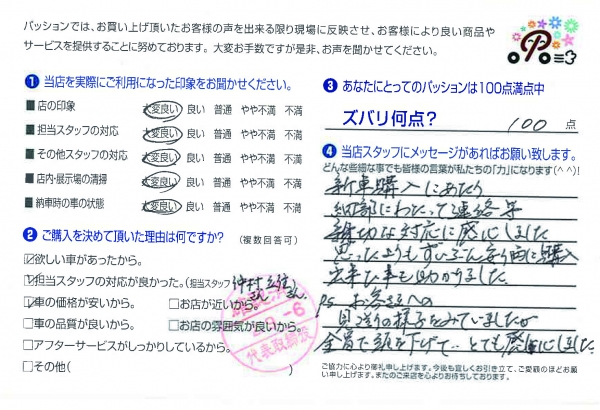 パッションでは、お買い上げ頂いたお客様の声を出来る限り現場に反映させ、お客様により良い商品や
サービスを提供することに努めております。大変お手数ですが是非、お声を聞かせてください。
❶ 当店を実際にご利用になった印象をお聞かせください。
■ 店の印象 大変良い 良い 普通 やや不満 不満
■ 担当スタッフの対応 大変良い 良い 普通 やや不満 不満
■ その他スタッフの対応 大変良い 良い 普通 やや不満 不満
■ 店内・展示場の清掃 大変良い 良い 普通 やや不満 不満
■ 納車時の車の状態 大変良い 良い 普通 やや不満 不満
❷ ご購入を決めて頂いた理由は何ですか? (複数回答可)
☑欲しい車があったから。
☑担当スタッフの対応が良かった。(担当スタッフ 仲村さん さん
☑車の価格が安いから。 □お店が近いから。
□車の品質が良いから。 □お店の雰囲気が良いから。
□アフターサービスがしっかりしているから。
□その他( )
代表取締役
❸ あなたにとってのパッションは100点満点中
ズバリ何点? 100 点
❹ 当店スタッフにメッセージがあればお願い致します。
どんな些細な事でも皆様の言葉が私たちの「力」になります(^ ^)!
新車購入にあたり
細部にわたって連絡等
親切な対応に感心しました
思ったよりもずいぶん安価に購入
出来た事も助かりました。
P.S お客さまへの
見送りの様子をみていましたが
全員で頭を下げて‥とても感心しました
ご協力に心より御礼申し上げます。今後も宜しくお引き立て、ご愛顧のほどお願
い申し上げます。またのご来店を心よりお待ちしております。